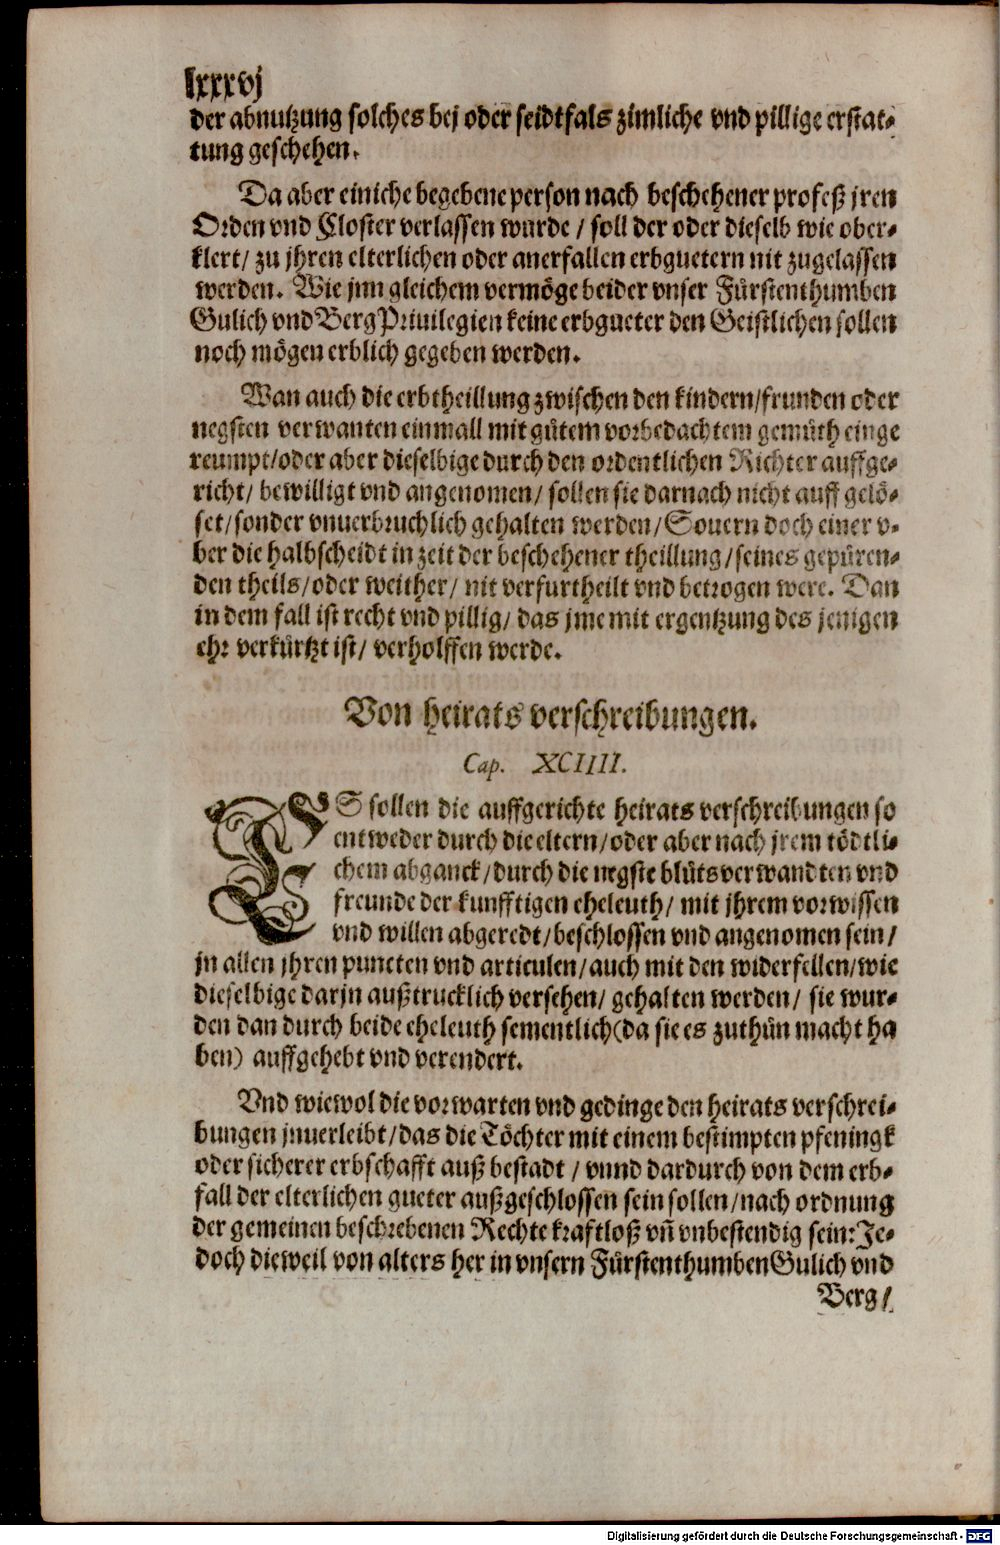 lxxxvj
der abnutzung solches bej oder seidtfals zimliche vnd pillige erstat-
tung geschehen.
Da aber einiche begebene person nach beschehener profeß jren
Orden vnd Closter verlassen wurde / soll der oder dieselb wie ober-
klert/ zu jhren elterlichen oder anerfallen erbguetern nit zugelassen
werden. Wie jnn gleichem vermöge beider vnser Fürstenthumben
Gulich vnd Berg Priuilegien keine erbgueter den Geistlichen sollen
noch mögen erblich gegeben werden.
Wan auch die erbtheillung zwischen den kindern/frunden oder
negsten verwanten einmall mit gůtem vorbedachtem gemüth einge
reumpt/oder aber dieselbige durch den ordentlichen Richter auffge-
richt/ bewilligt vnd angenomen/ sollen sie darnach nicht auff gelö-
set/sonder vnuerbruchlich gehalten werden/Souern doch einer v-
ber die halbscheidt in zeit der beschehener theillung/seines gepüren-
den theils/oder weither/ nit verfurtheilt vnd betrogen were. Dan
in dem fall ist recht vnd pillig/ das jme mit ergentzung des jenigen
ehr verkürtzt ist/ verholffen werde.
Von heirats verschreibungen.
Cap. XCIIII.
ES sollen die auffgerichte heirats verschreibungen so
entweder durch die eltern/oder aber nach jrem tödtli-
chem abganck/durch die negste blůtsverwandten vnd
freunde der kunfftigen eheleuth/ mit jhrem vorwissen
vnd willen abgeredt/beschlossen vnd angenomen sein/
jn allen jhren puncten vnd articulen/auch mit den widerfellen/wie
dieselbige darjn außtrucklich versehen/ gehalten werden/ sie wur-
den dan durch beide eheleuth sementlich(da sie es zuthůn macht ha
ben) auffgehebt vnd verendert.
Vnd wiewol die vorwarten vnd gedinge den heirats verschrei-
bungen jnuerleibt/das die Töchter mit einem bestimpten pfeningk
oder sicherer erbschafft auß bestadt / vnnd dardurch von dem erb-
fall der elterlichen gueter außgeschlossen sein sollen/nach ordnung
der gemeinen beschrebenen Rechte krafftloß vñ vnbestendig sein: Je-
doch dieweil von alters her in vnsern Fürstenthumben Gulich vnd
Berg/
Digitalisierung gefördert durch die Deutsche Forschungsgemeinschaft - DFG